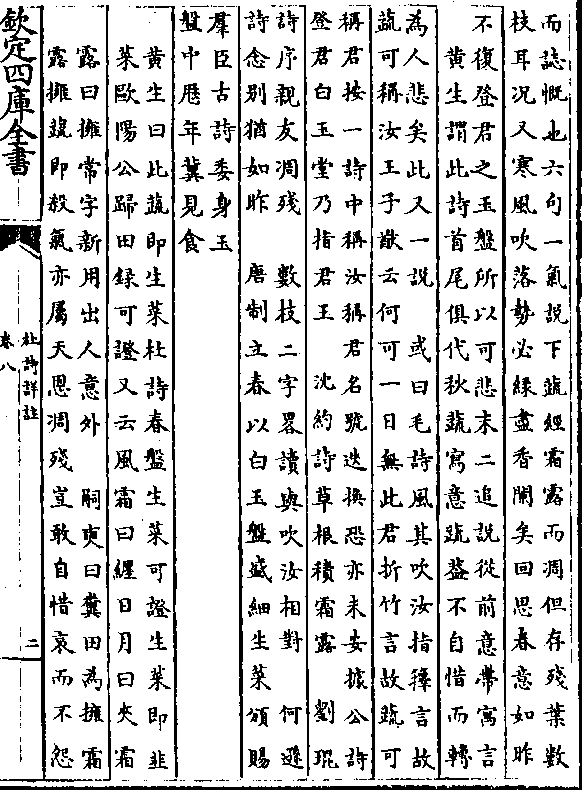 而誌慨也六句一氣說下蔬經霜露而凋但存殘葉數
枝耳况又寒風吹落勢必綠盡香闌矣回思春意如昨
不復登君之玉盤所以可悲末二追說從前意帶寓言
黄生謂此詩首尾俱代秋蔬寫意蔬葢不自惜而轉
為人悲矣此又一說　或曰毛詩風其吹汝指籜言故
蔬可稱汝王子猷云何可一日無此君折竹言故蔬可
稱君按一詩中稱汝稱君名號迭換恐亦未安據公詩
登君白玉堂乃指君王　沈約詩草根積霜露　劉琨
詩序親友凋殘　數枝二字畧讀與吹汝相對　何遜
詩念别猶如昨　唐制立春以白玉盤盛細生菜頒賜
羣臣古詩委身玉
盤中歴年冀見食
黄生曰此蔬即生菜杜詩春盤生菜可證生菜即韭
菜歐陽公歸田録可證又云風霜曰纒日月曰夾霜
露曰擁常字新用出人意外　嗣奭曰糞田為擁霜
露擁蔬即殺氣亦屬天恩凋殘豈敢自惜哀而不怨
欽定四庫全書
杜詩詳註
卷八
二